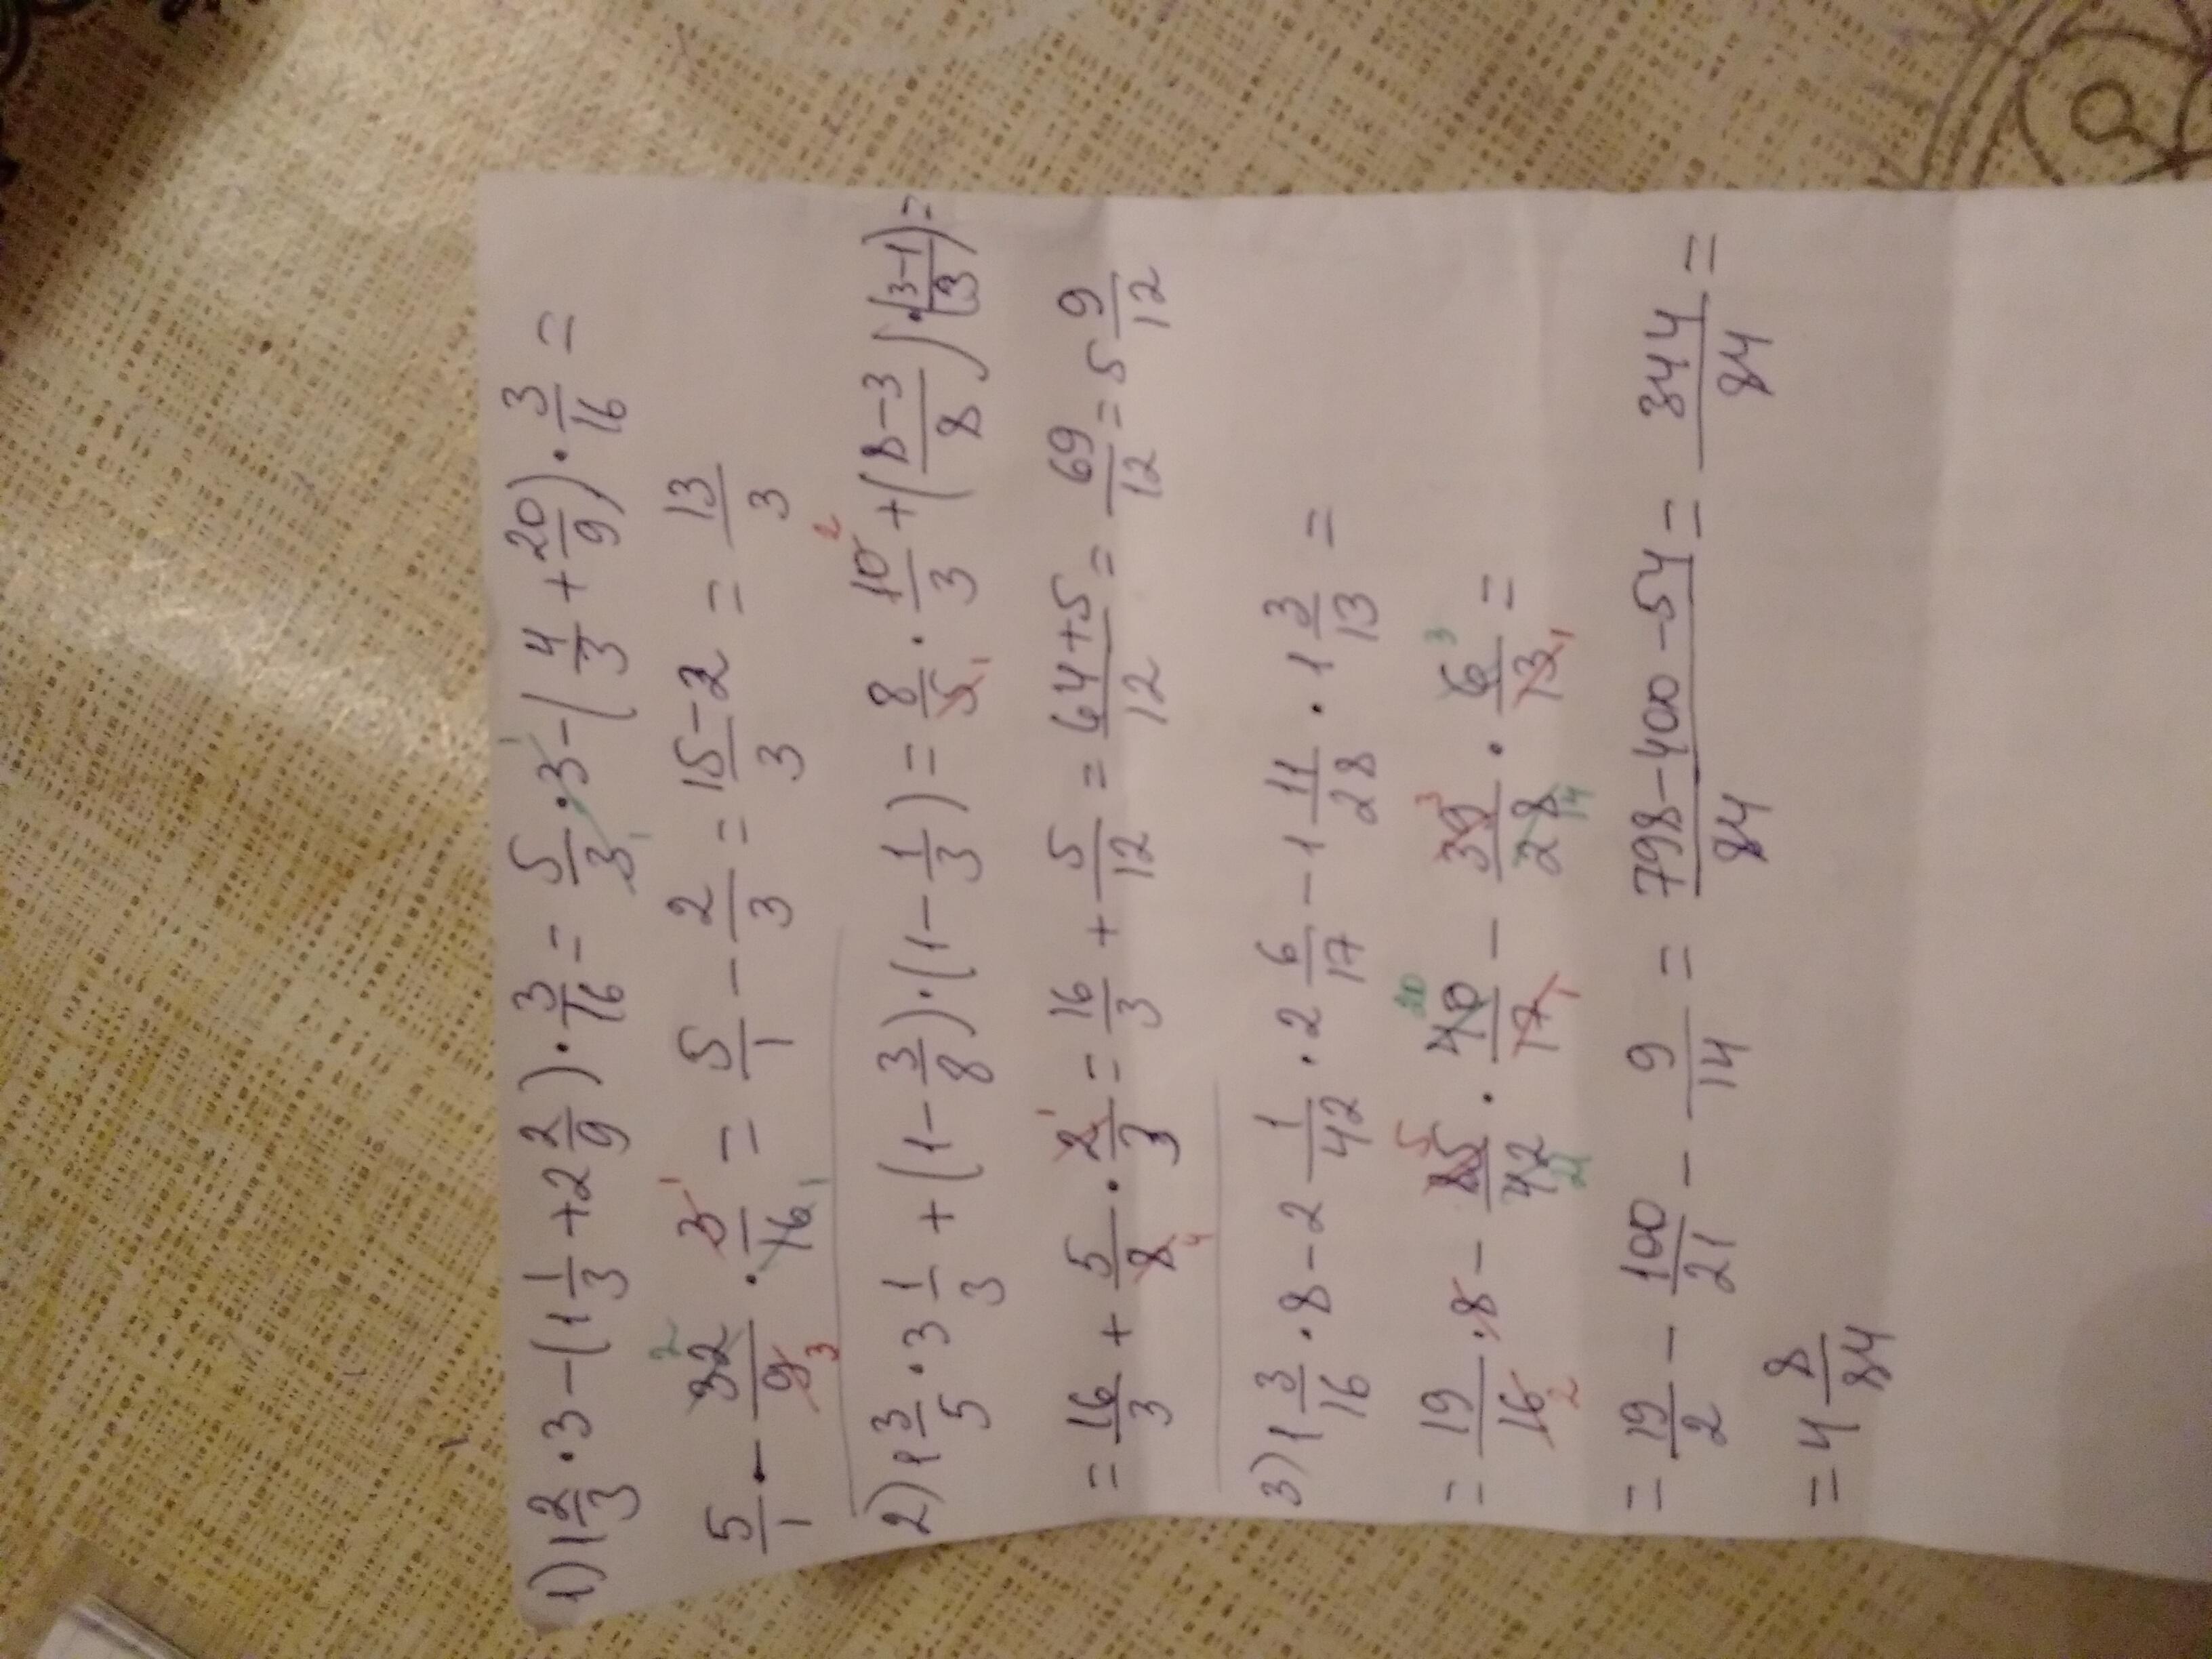 1) 1 2/3 · 3 − (1 1/3 + 2 2/9) · 3/16 = 5/3 · 3 − (4/3 + 20/9) · 3/16 =
5/1 − 32/9 · 3/16 = 5/1 − 2/3 = (15−2)/3 = 13/3
2) 1 3/5 · 3 1/3 + (1 − 3/8) · (1 − 1/3) = 8/5 · 10/3 + ((8−3)/8) · ((3−1)/3) =
= 16/3 + 5/8 · 2/3 = 16/3 + 5/12 = (64+5)/12 = 69/12 = 5 9/12
3) 1 3/16 · 8 − 2 1/42 · 2 6/17 − 1 11/28 · 1 3/13 =
= 19/16 · 8 − 85/42 · 40/17 − 39/28 · 6/13 =
= 19/2 − 100/21 − 9/14 = (798−400−54)/84 = 344/84 =
= 4 8/84